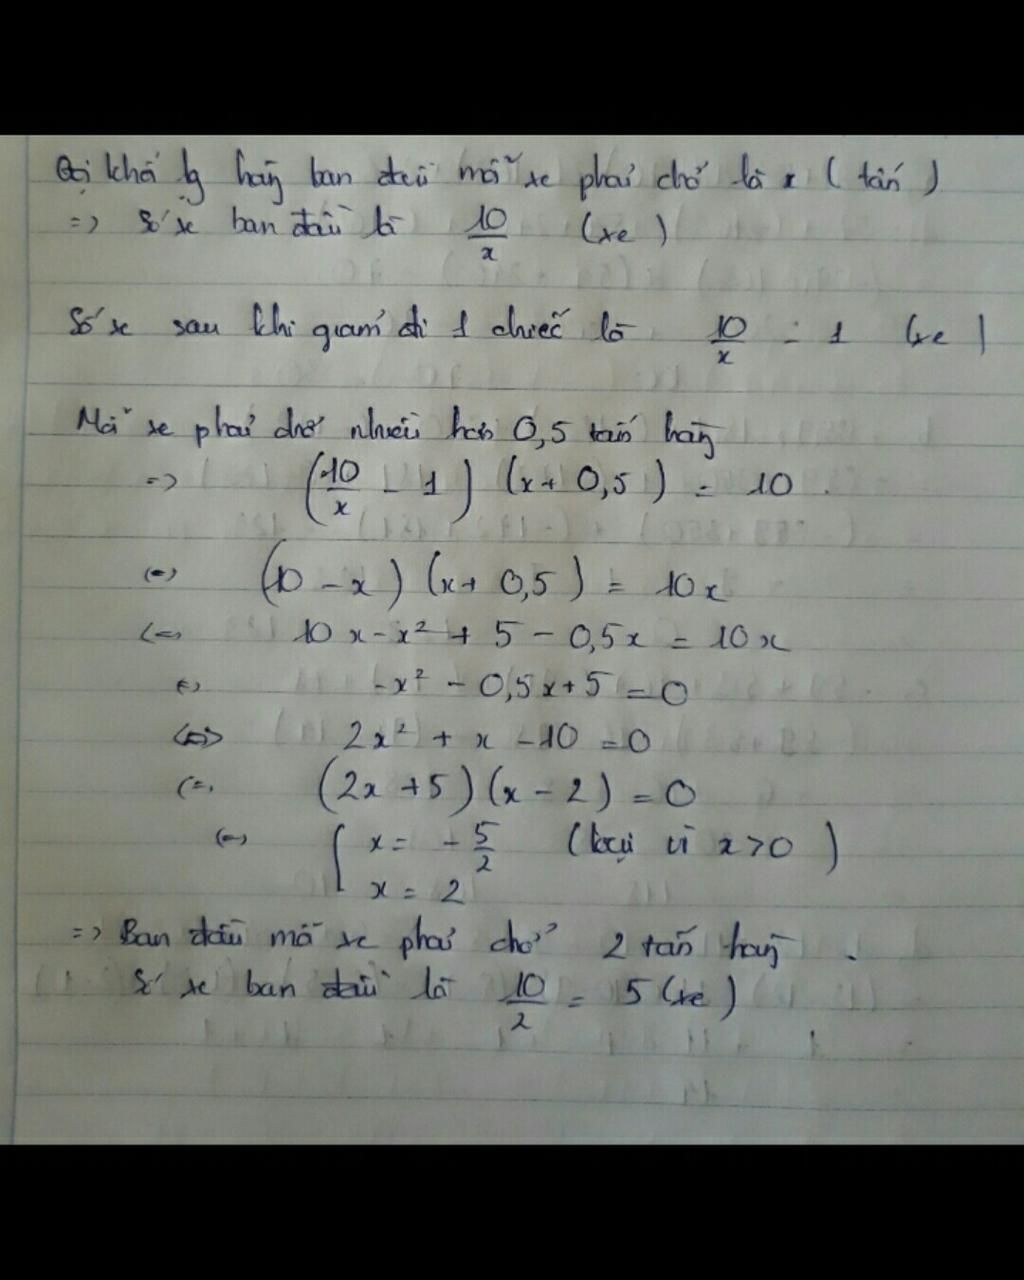 Gọi khối lg hàng ban đầu mỗi xe phải chở là x ( tấn )
=> Số xe ban đầu là 10/x (xe )
Số xe sau khi giảm đi 1 chiếc là 10/x - 1 (xe )
Mỗi xe phải chở nhiều hơn 0,5 tấn hàng
=> (10/x - 1) (x + 0,5) = 10
<=> (10 - x) (x + 0,5) = 10x
<=> 10x - x² + 5 - 0,5x = 10x
<=> -x² - 0,5x + 5 = 0
<=> 2x² + x - 10 = 0
<=> (2x + 5) (x - 2) = 0
<=> [ x = - 5/2 (loại vì x > 0 )
x = 2
=> Ban đầu mỗi xe phải chở 2 tấn hàng .
Số xe ban đầu là 10/2 = 5 (xe )